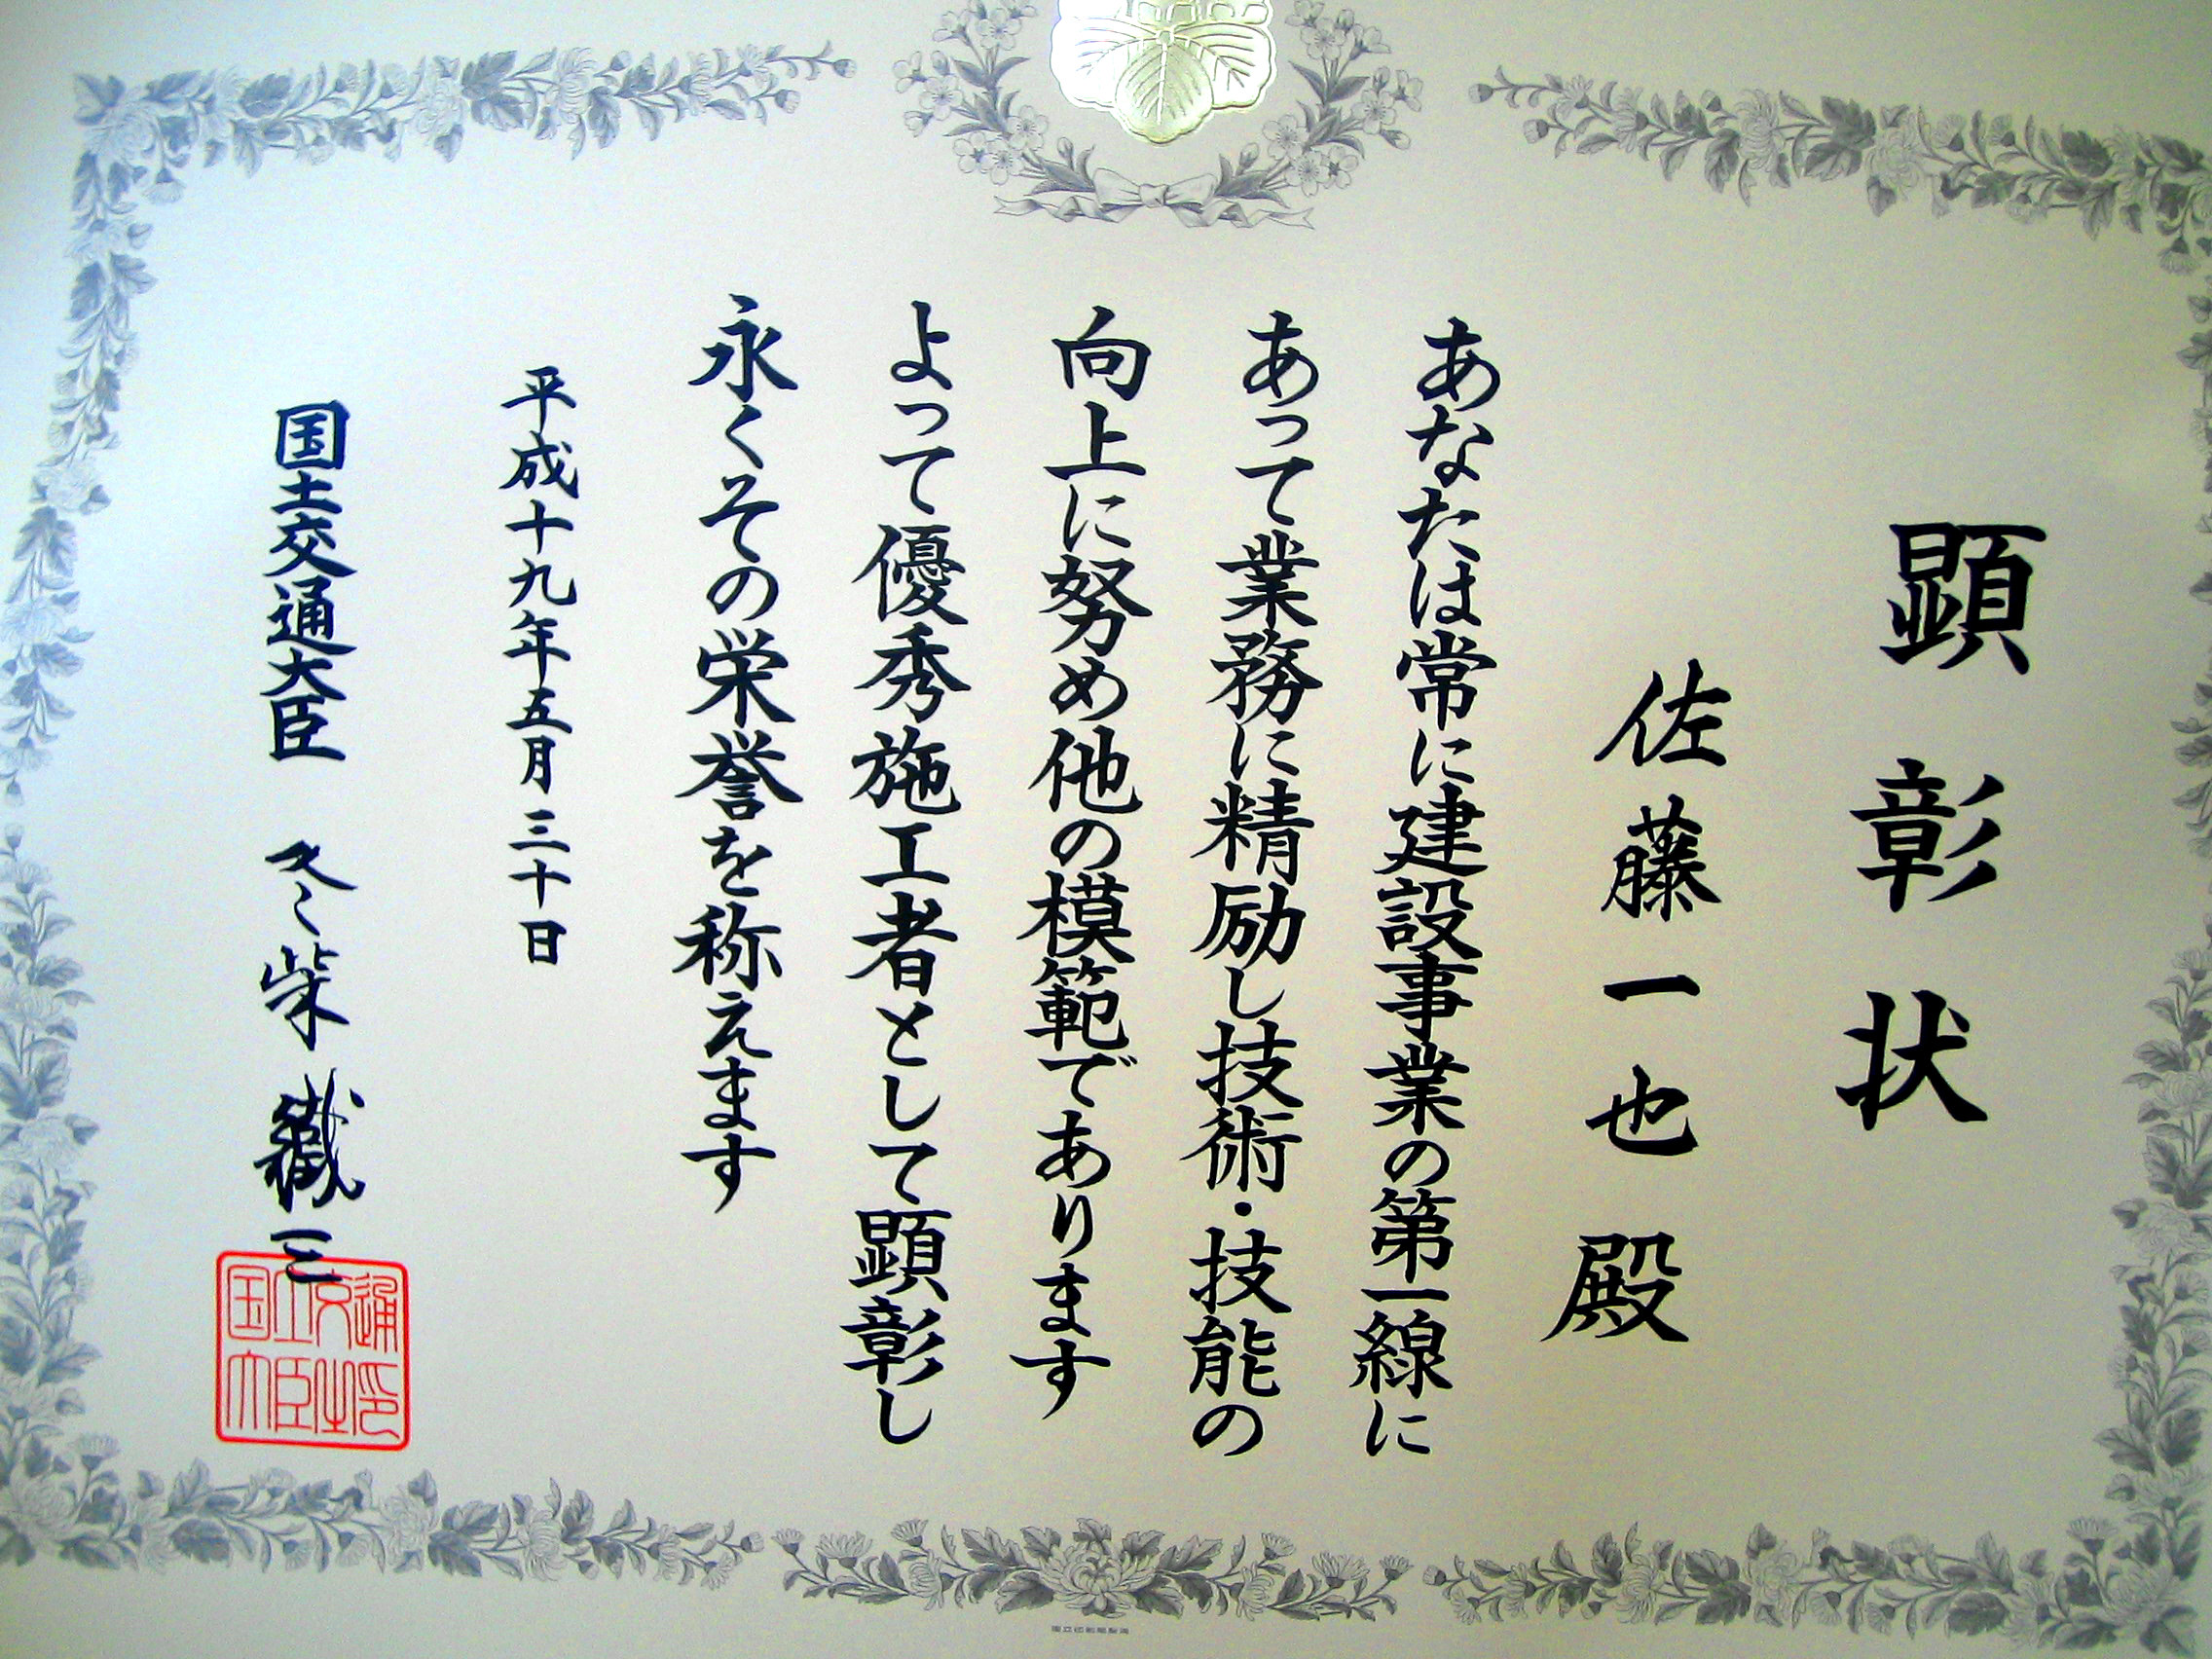 顕彰状
佐藤一也殿
あなたは常に建設事業の第一線に
あって業務に精励し技術・技能の
向上に努め他の模範であります
よって優秀施工者として顕彰し
永くその栄誉を称えます
平成十九年五月三十日
国土交通大臣 冬柴鐵三
国土交通
大臣之印